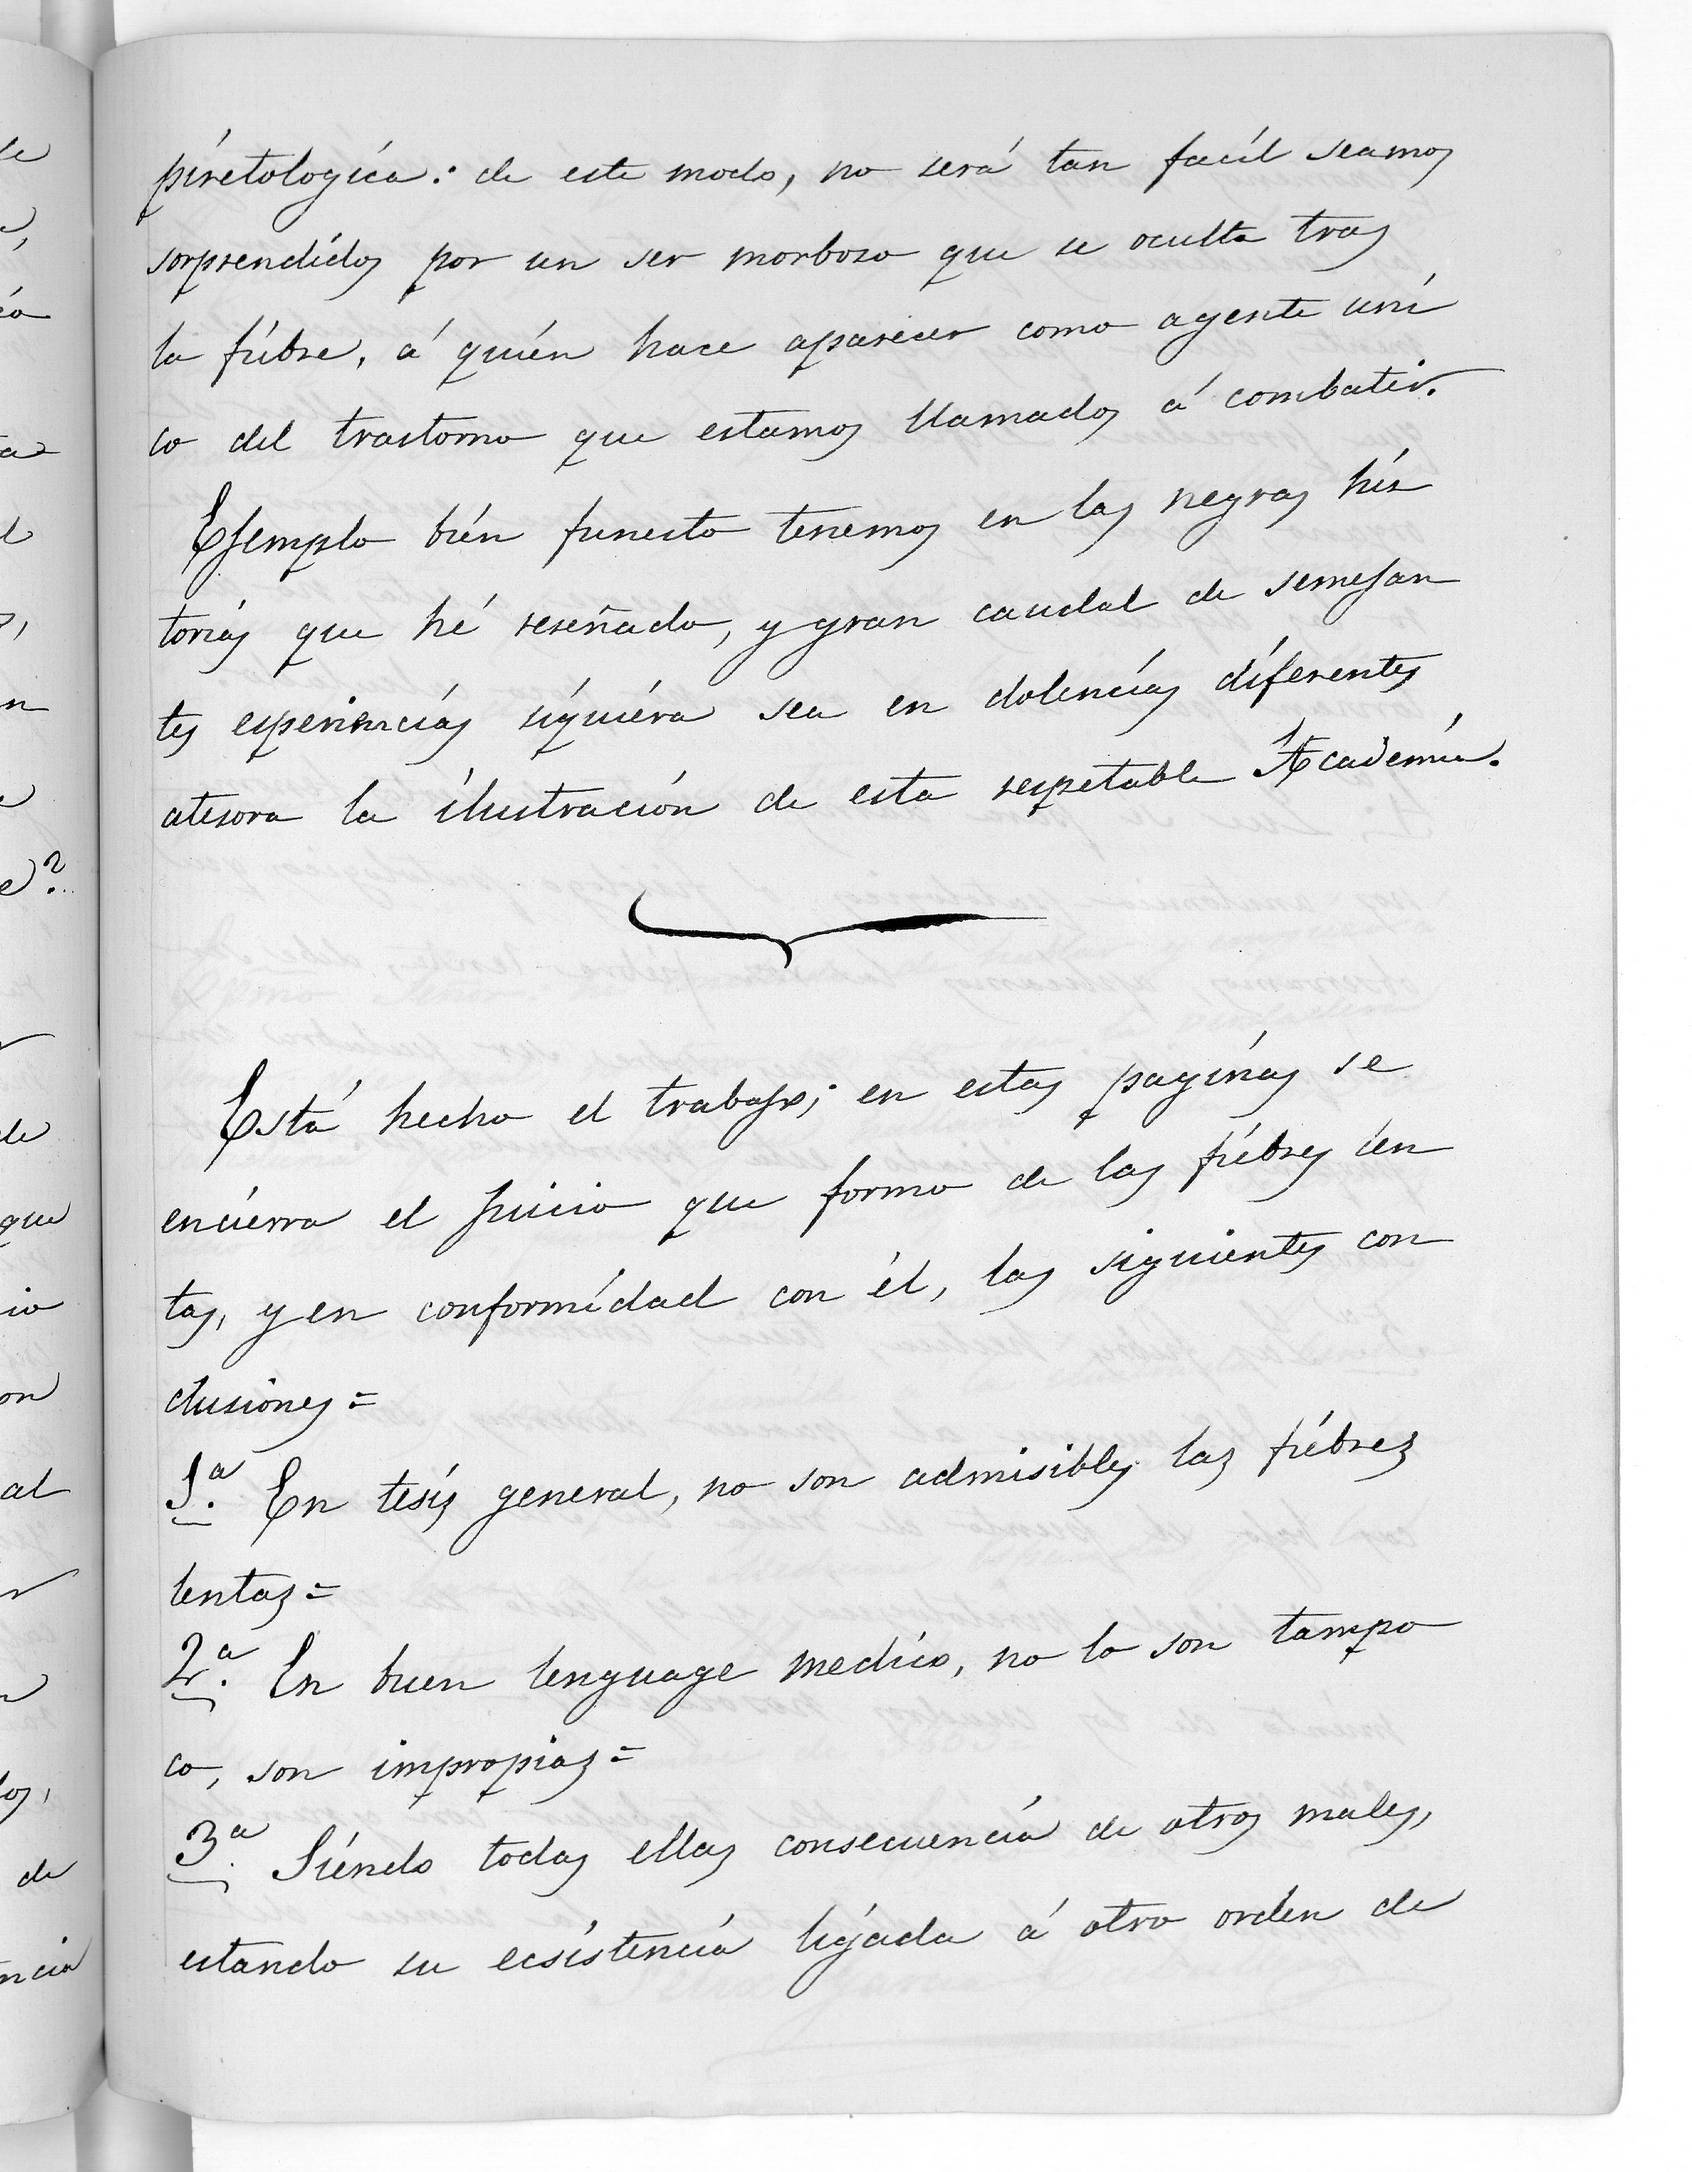 piretologica: de este modo, no será tan facíl seamos
sorprendidos por un ser morboso que se oculta tras
la fiébre, á quién hace aparecer como agente uni
co del trastorno que estamos llamados á combatir.
Ejemplo bién funesto tenemos en las negras his
torias que hé reseñado, y gran caudal de semejan
tes esperiencias siquiéra sea en dolencias diferentes
atesora la ilustración de esta respetable Academia.
Está hecho el trabajo; en estas paginas se
enciérra el juicio que formo de las fiébres len
tas, y en conformidad con él, las siguientes con
clusiones=
1.ª En tesis general, no son admisibles las fiébres
lentas=
2.ª En buen lenguage medico, no lo son tampo
co, son impropias=
3.ª Siéndo todas ellas consecuencia de otros males,
estando su ecsistencia ligada á otro orden de